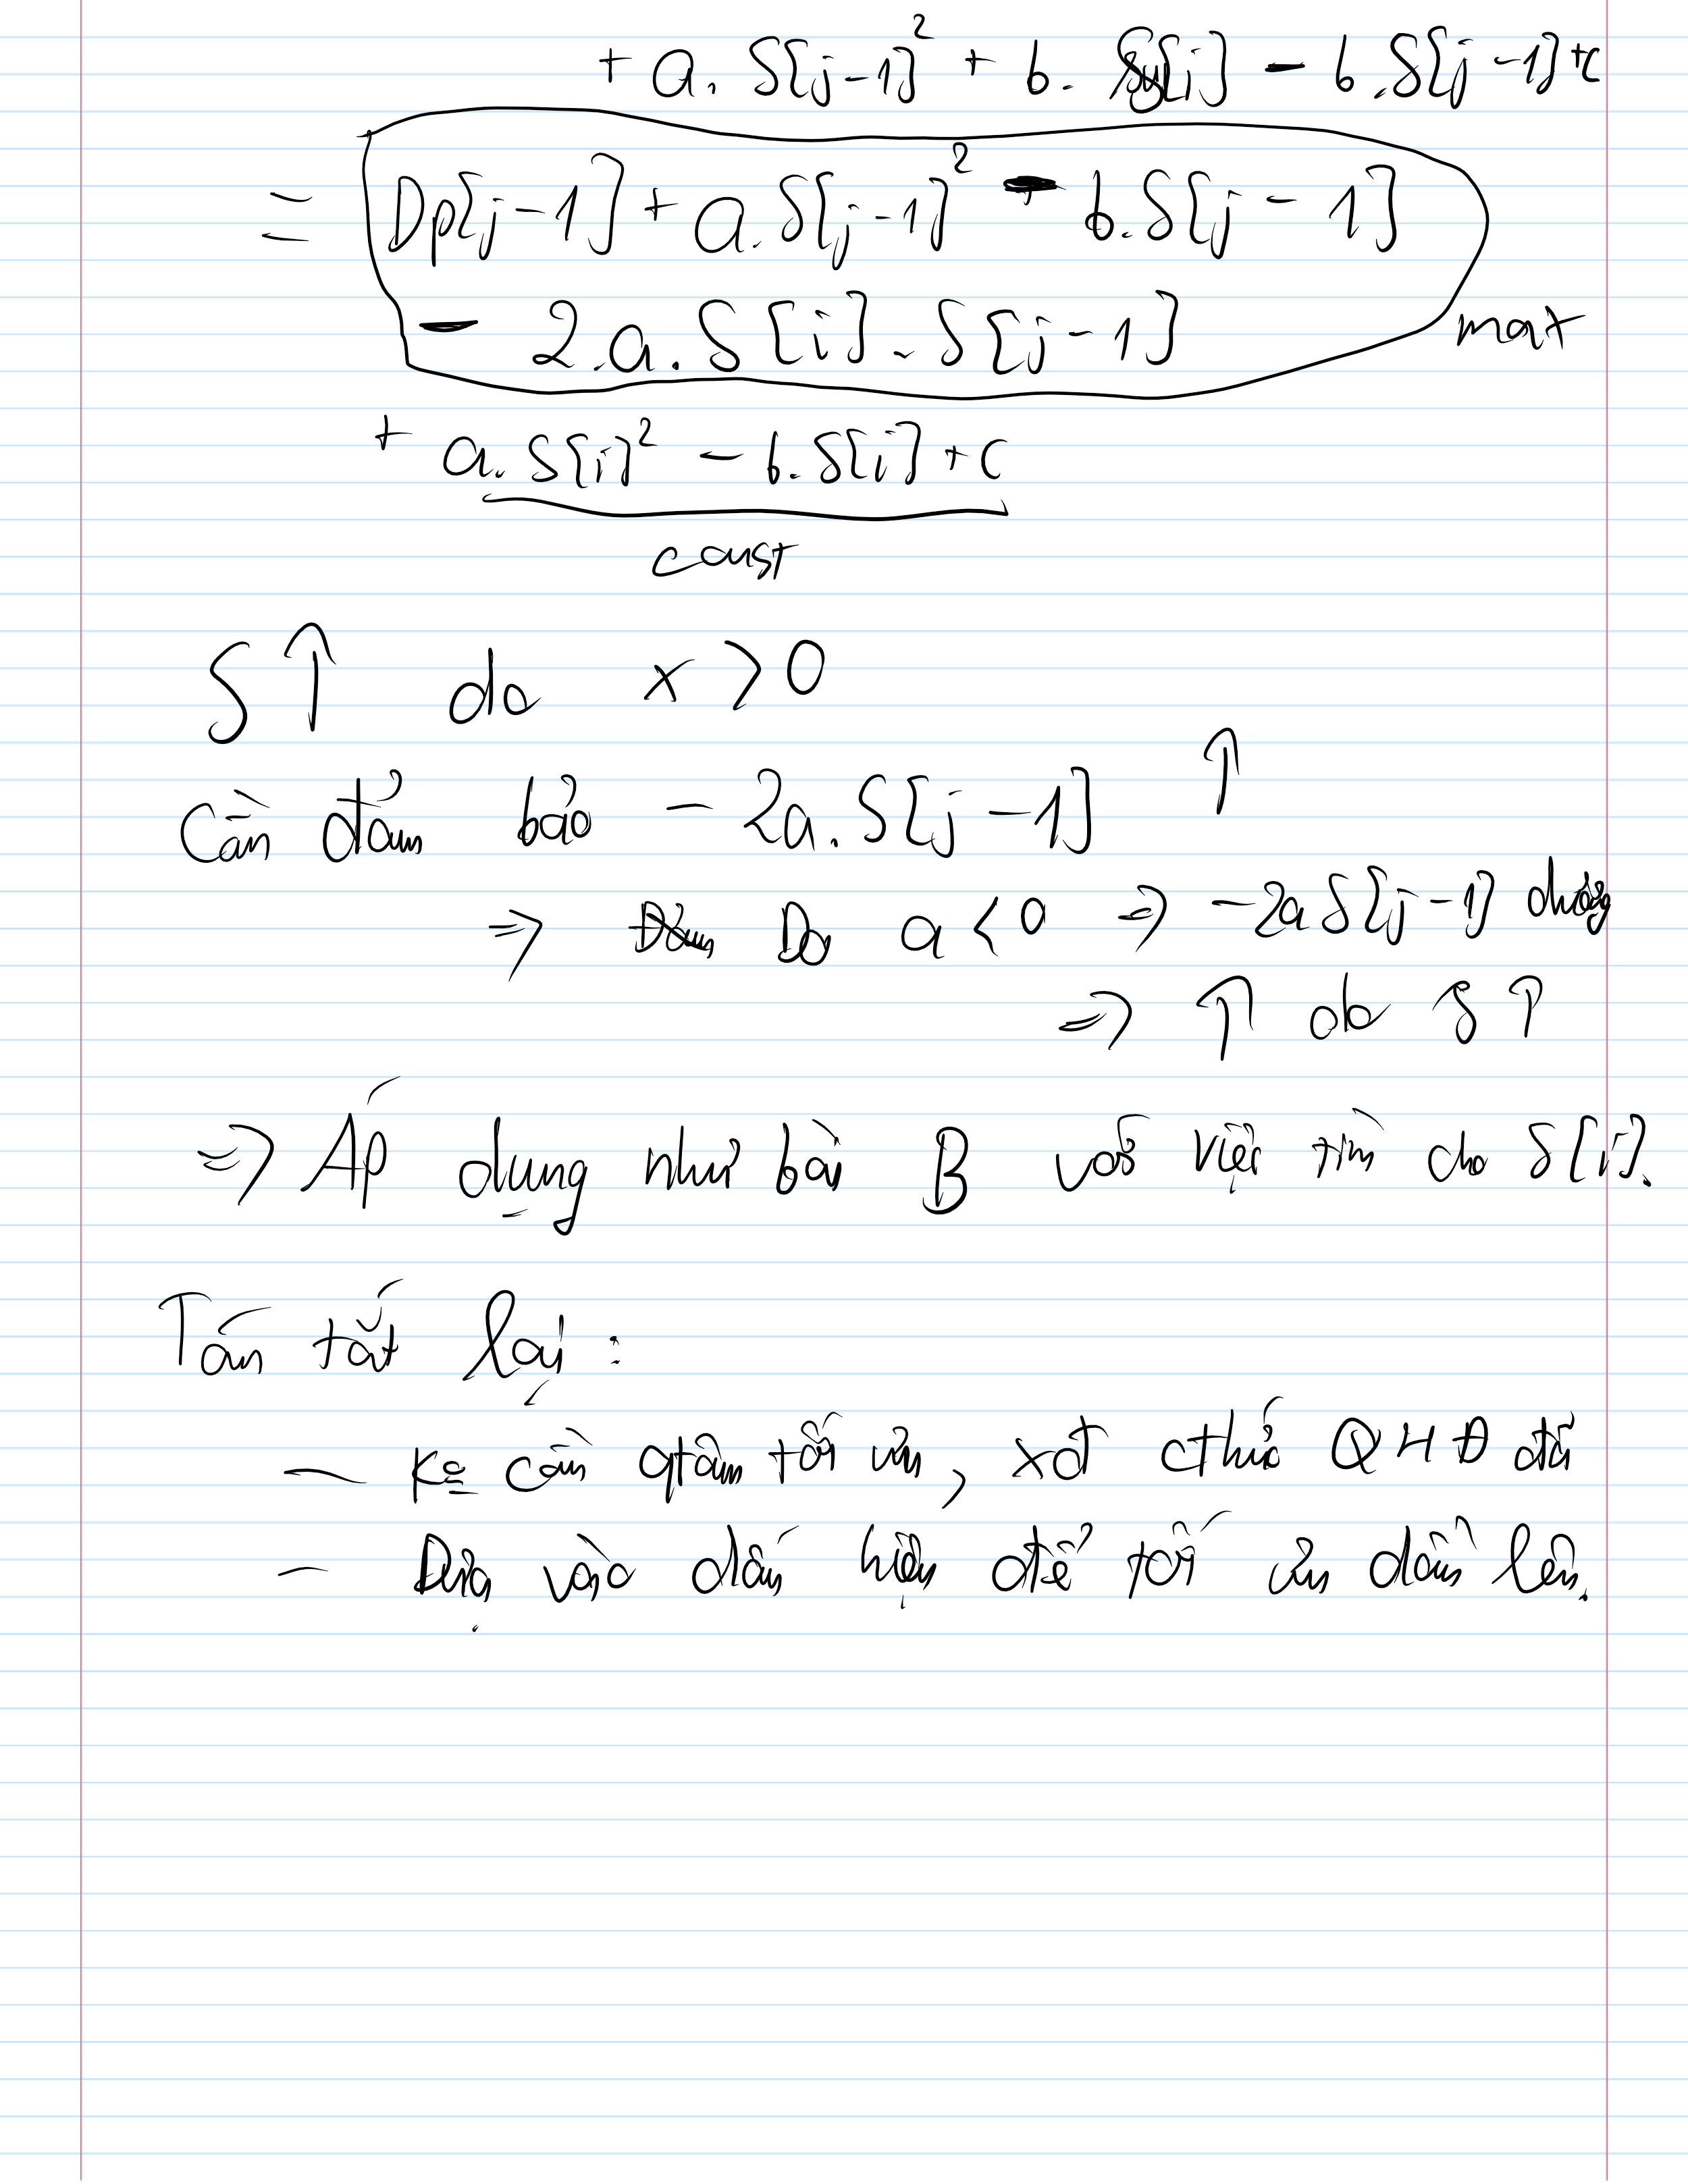 + a. S[j-1]² + b. S[i] - b. S[j-1] + c
= Dp[j-1] + a. S[j-1]² - b. S[j-1]
- 2.a. S[i]. S[j-1] max
+ a. S[i]² - b. S[i] + c
const
S↑ do x > 0
Cần đảm bảo - 2a. S[j-1] ↑
⇒ Do a < 0 ⇒ -2a S[j-1] dương
⇒ ↑ do S↑
⇒ Áp dụng như bài B với việc tìm cho S[i].
Tóm tắt lại:
- K cần qtâm tối ưu, xđ cthức QHĐ đã
- Dựa vào dấu hiệu để tối ưu dần lên.